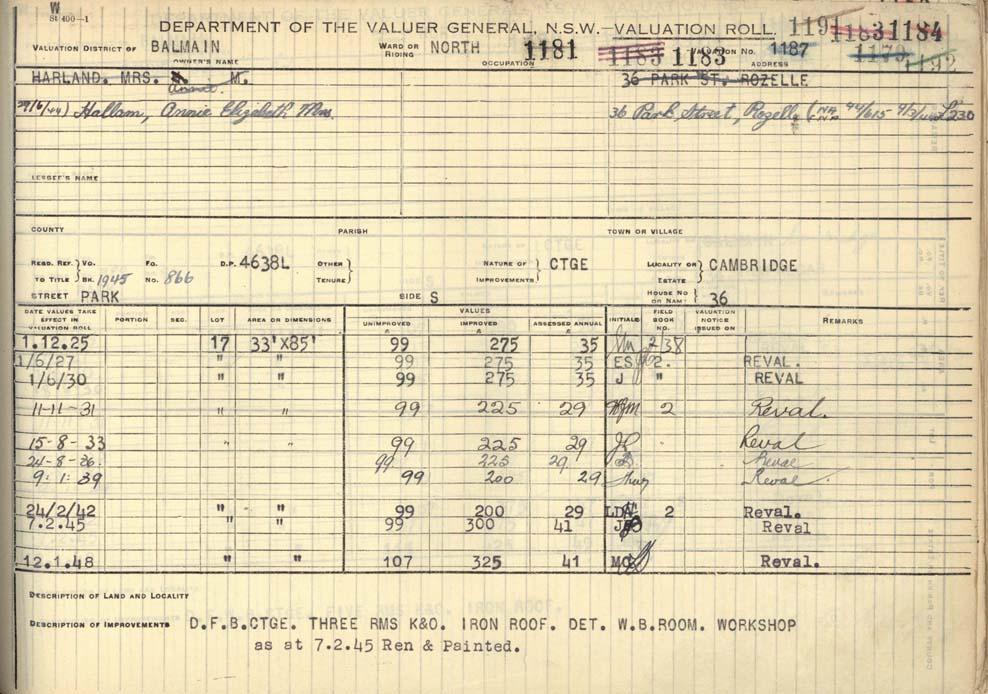 W
St 400—1
DEPARTMENT OF THE VALUER GENERAL, N.S.W.—VALUATION ROLL. 1191 1183 1184
VALUATION DISTRICT OF BALMAIN WARD OR RIDING NORTH 1181 1183 1183 VALUATION No. 1187 1179 1192
OWNER'S NAME OCCUPATION ADDRESS
HARLAND. MRS. M. 36 PARK ST. ROZELLE
Annie.
29/6/44) Hallam, Annie Elizabeth Mrs. 36 Park Street, Rozelle 44/615 £230
LESSEE'S NAME
COUNTY PARISH TOWN OR VILLAGE
REGD. REF. TO TITLE } Vo. Fo. D.P. 4638L OTHER TENURE } NATURE OF IMPROVEMENTS } CTGE LOCALITY OR ESTATE } CAMBRIDGE
BK. 1945 No. 866
STREET PARK SIDE S HOUSE No OR NAME } 36
DATE VALUES TAKE EFFECT IN VALUATION ROLL PORTION SEC. LOT AREA OR DIMENSIONS VALUES UNIMPROVED £ IMPROVED £ ASSESSED ANNUAL £ INITIALS FIELD BOOK NO. VALUATION NOTICE ISSUED ON REMARKS
1.12.25 17 33'X85' 99 275 35 2/38
1/6/27 " " 99 275 35 ES 2. REVAL.
1/6/30 " " 99 275 35 J " REVAL
11-11-31 " " 99 225 29 2 Reval.
15-8-33 " " 99 225 29 Reval
24-8-36. 99 225 29 Reval
9:1:39 99 200 29 Reval.
24/2/42 " " 99 200 29 LD 2 Reval.
7.2.45 " " 99 300 41 Reval
12.1.48 " " 107 325 41 Reval.
DESCRIPTION OF LAND AND LOCALITY
DESCRIPTION OF IMPROVEMENTS D.F.B.CTGE. THREE RMS K&O. IRON ROOF. DET. W.B.ROOM. WORKSHOP
as at 7.2.45 Ren & Painted.